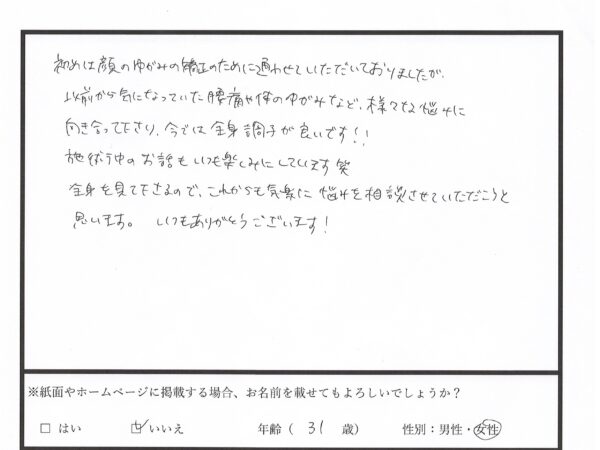 初めは顔のゆがみの矯正のために通わせていただいておりましたが、
以前から気になっていた腰痛や体のゆがみなど、様々な悩みに
向き合って下さり、今では全身調子が良いです!!
施術中のお話もいつも楽しみにしています笑
全身を見て下さるので、これからも気楽に悩みを相談させていただこうと
思います。 いつもありがとうございます!
※紙面やホームページに掲載する場合、お名前を載せてもよろしいでしょうか?
□ はい ☑ いいえ 年齢( 31 歳) 性別:男性・女性